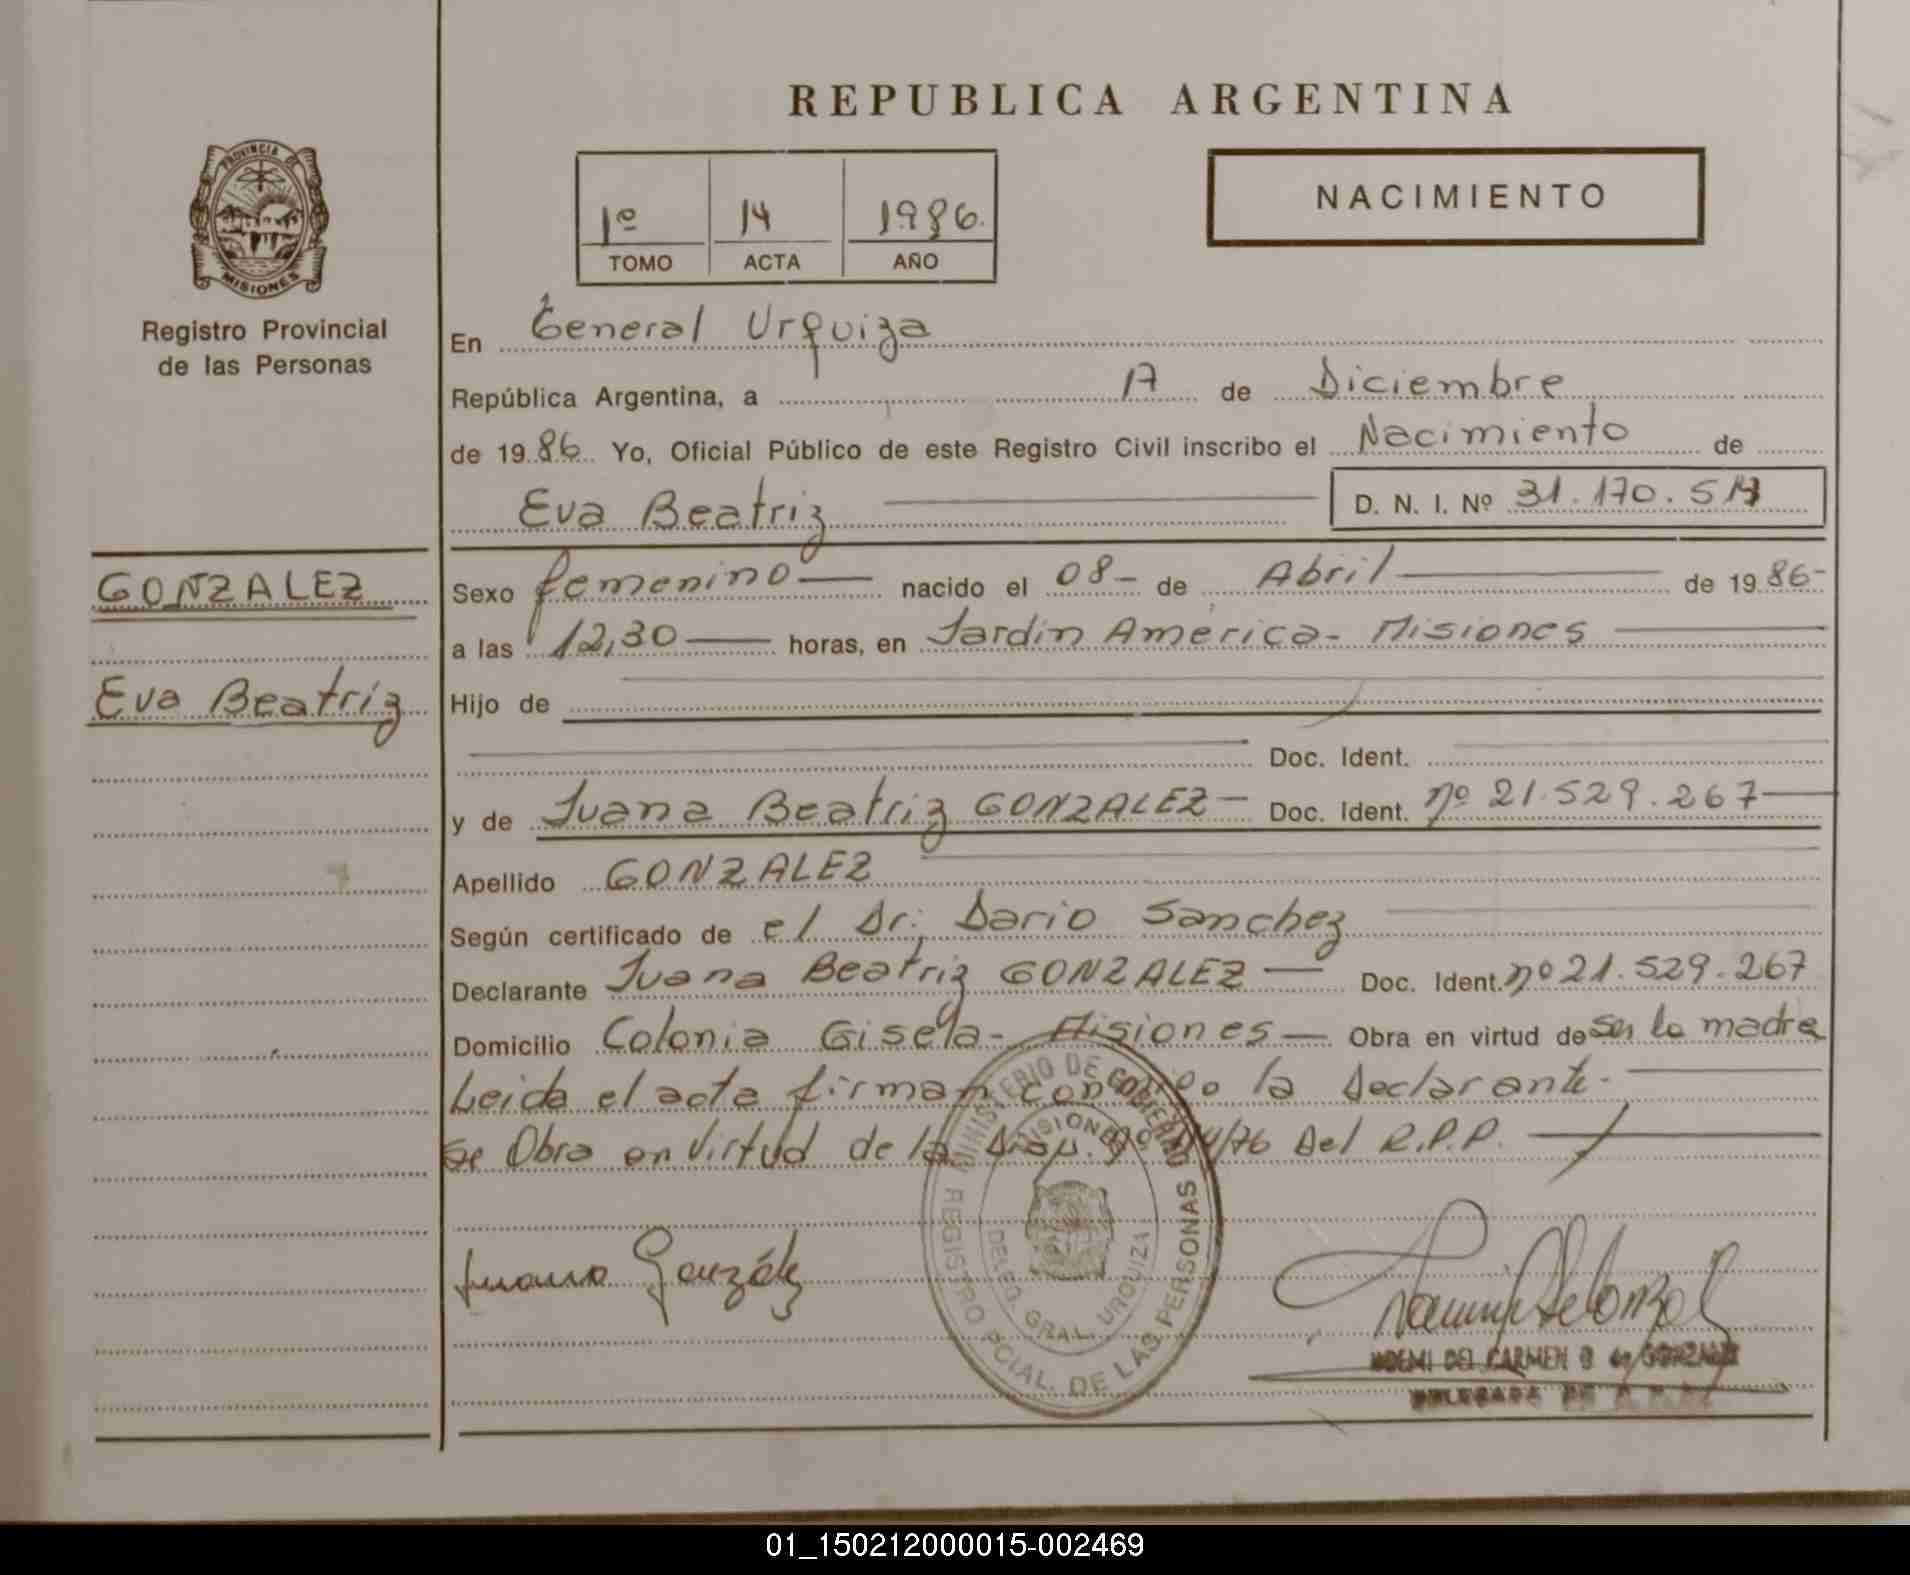 REPUBLICA ARGENTINA
PROVINCIA DE
MISIONES
Registro Provincial
de las Personas
1º 14 1986.
TOMO ACTA AÑO
NACIMIENTO
En General Urquiza
República Argentina, a 17 de Diciembre
de 1986 Yo, Oficial Público de este Registro Civil inscribo el Nacimiento de
Eva Beatriz D. N. I. Nº 31.170.
GONZALEZ
Eva Beatriz
Sexo femenino nacido el 08- de Abril de 1986-
a las 12,30 horas, en Jardin America- Misiones
Hijo de
Doc. Ident.
y de Juana Beatriz GONZALEZ- Doc. Ident. nº 21.529.267
Apellido GONZALEZ
Según certificado de el Dr: Dario Sanchez
Declarante Juana Beatriz GONZALEZ Doc. Ident. nº 21.529.267
Domicilio Colonia Gisela- Misiones Obra en virtud de ser la madre
Leida el acta firman conmigo la Declarante.
Se Obra en Virtud de la /76 Del R.P.P.
MINISTERIO DE GOBIERNO
MISIONES
REGISTRO PCIAL. DE LAS PERSONAS
DELEG. GRAL. URQUIZA
Juana González
NOEMI DEL CARMEN B de GONZALEZ
DELEGADA
01_150212000015-002469